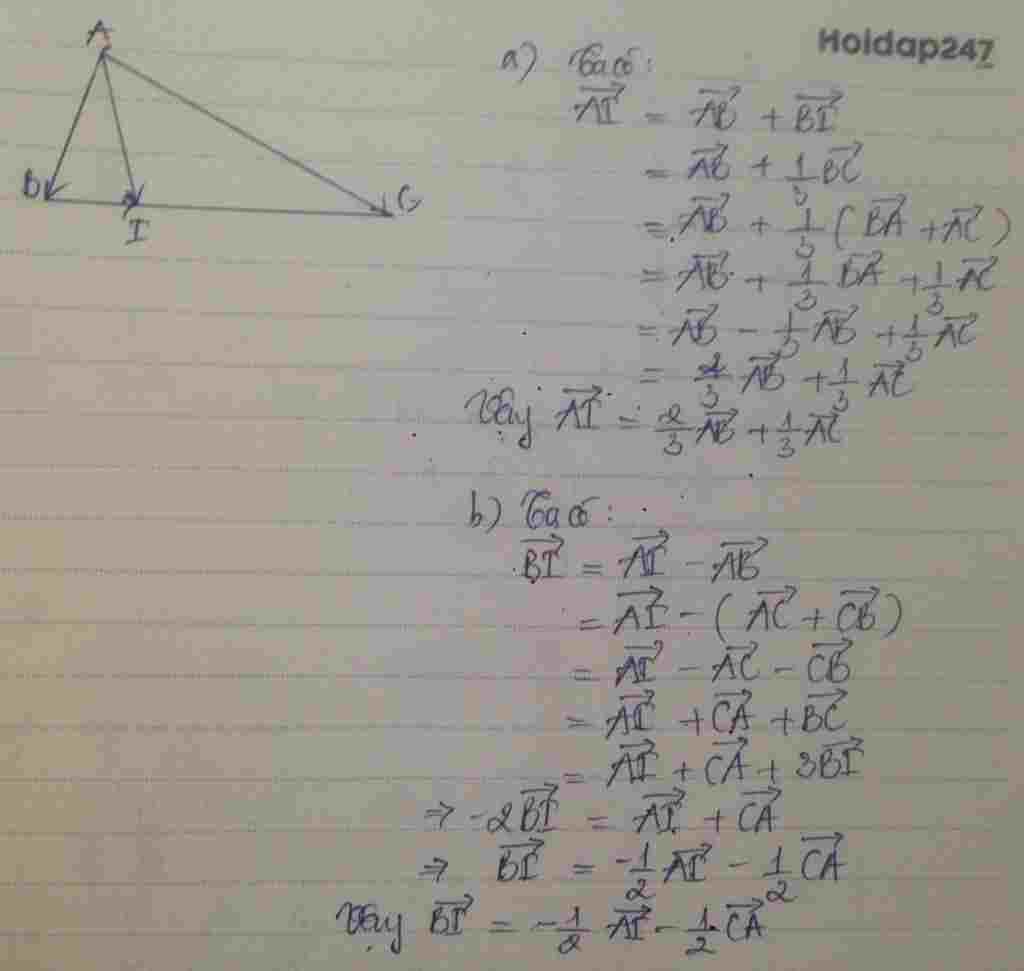 Hoidap247
A
B
I
C
a) Ta có:
$\overrightarrow{AI} = \overrightarrow{AB} + \overrightarrow{BI}$
$= \overrightarrow{AB} + \frac{1}{3}\overrightarrow{BC}$
$= \overrightarrow{AB} + \frac{1}{3}(\overrightarrow{BA} + \overrightarrow{AC})$
$= \overrightarrow{AB} + \frac{1}{3}\overrightarrow{BA} + \frac{1}{3}\overrightarrow{AC}$
$= \overrightarrow{AB} - \frac{1}{3}\overrightarrow{AB} + \frac{1}{3}\overrightarrow{AC}$
$= \frac{2}{3}\overrightarrow{AB} + \frac{1}{3}\overrightarrow{AC}$
Vậy $\overrightarrow{AI} = \frac{2}{3}\overrightarrow{AB} + \frac{1}{3}\overrightarrow{AC}$
b) Ta có:
$\overrightarrow{BI} = \overrightarrow{AI} - \overrightarrow{AB}$
$= \overrightarrow{AI} - (\overrightarrow{AC} + \overrightarrow{CB})$
$= \overrightarrow{AI} - \overrightarrow{AC} - \overrightarrow{CB}$
$= \overrightarrow{AI} + \overrightarrow{CA} + \overrightarrow{BC}$
$= \overrightarrow{AI} + \overrightarrow{CA} + 3\overrightarrow{BI}$
$\Rightarrow -2\overrightarrow{BI} = \overrightarrow{AI} + \overrightarrow{CA}$
$\Rightarrow \overrightarrow{BI} = -\frac{1}{2}\overrightarrow{AI} - \frac{1}{2}\overrightarrow{CA}$
Vậy $\overrightarrow{BI} = -\frac{1}{2}\overrightarrow{AI} - \frac{1}{2}\overrightarrow{CA}$